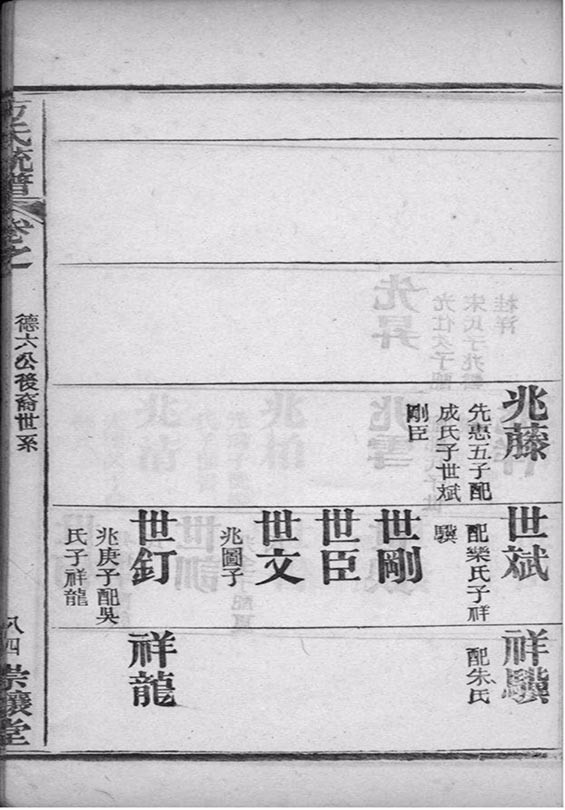 兆藤
先忠五子配
成氏子世斌
剛臣
世斌
配欒氏子祥
驥
世剛
世臣
世文
兆圖子
世釘
兆庚子配吳
氏子祥龍
祥驥
配朱氏
祥龍
氏統譜
卷之
德六公後裔世系
八四
堂